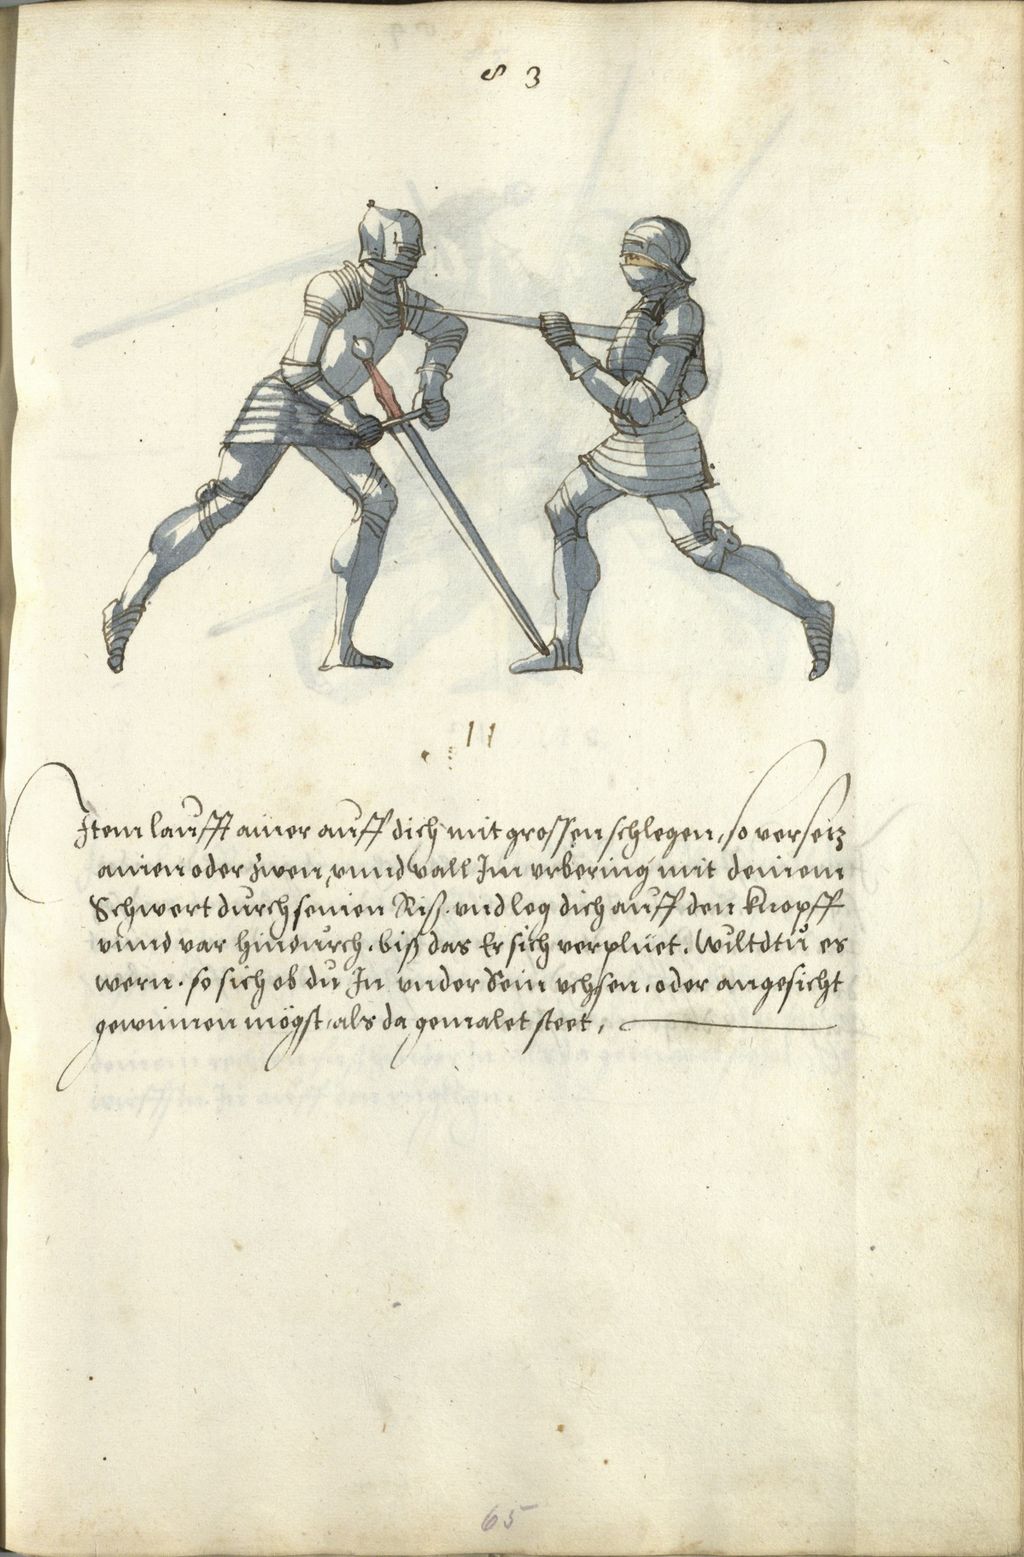 83
11
Item laufft ainer auff dich mit grossen schlegen, so versetz
ainen oder zwen, vnnd vall Im vrbering mit deinem
Schwert durch seinen Riß. vnd leg dich auff den knopff
vnnd var hindurch. biß das Er sich verpluet. Wiltdtu es
wern. so sich ob du In vnder Sein vchsen. oder angesicht
gewinnen mögst, als da gemalet steet,
65